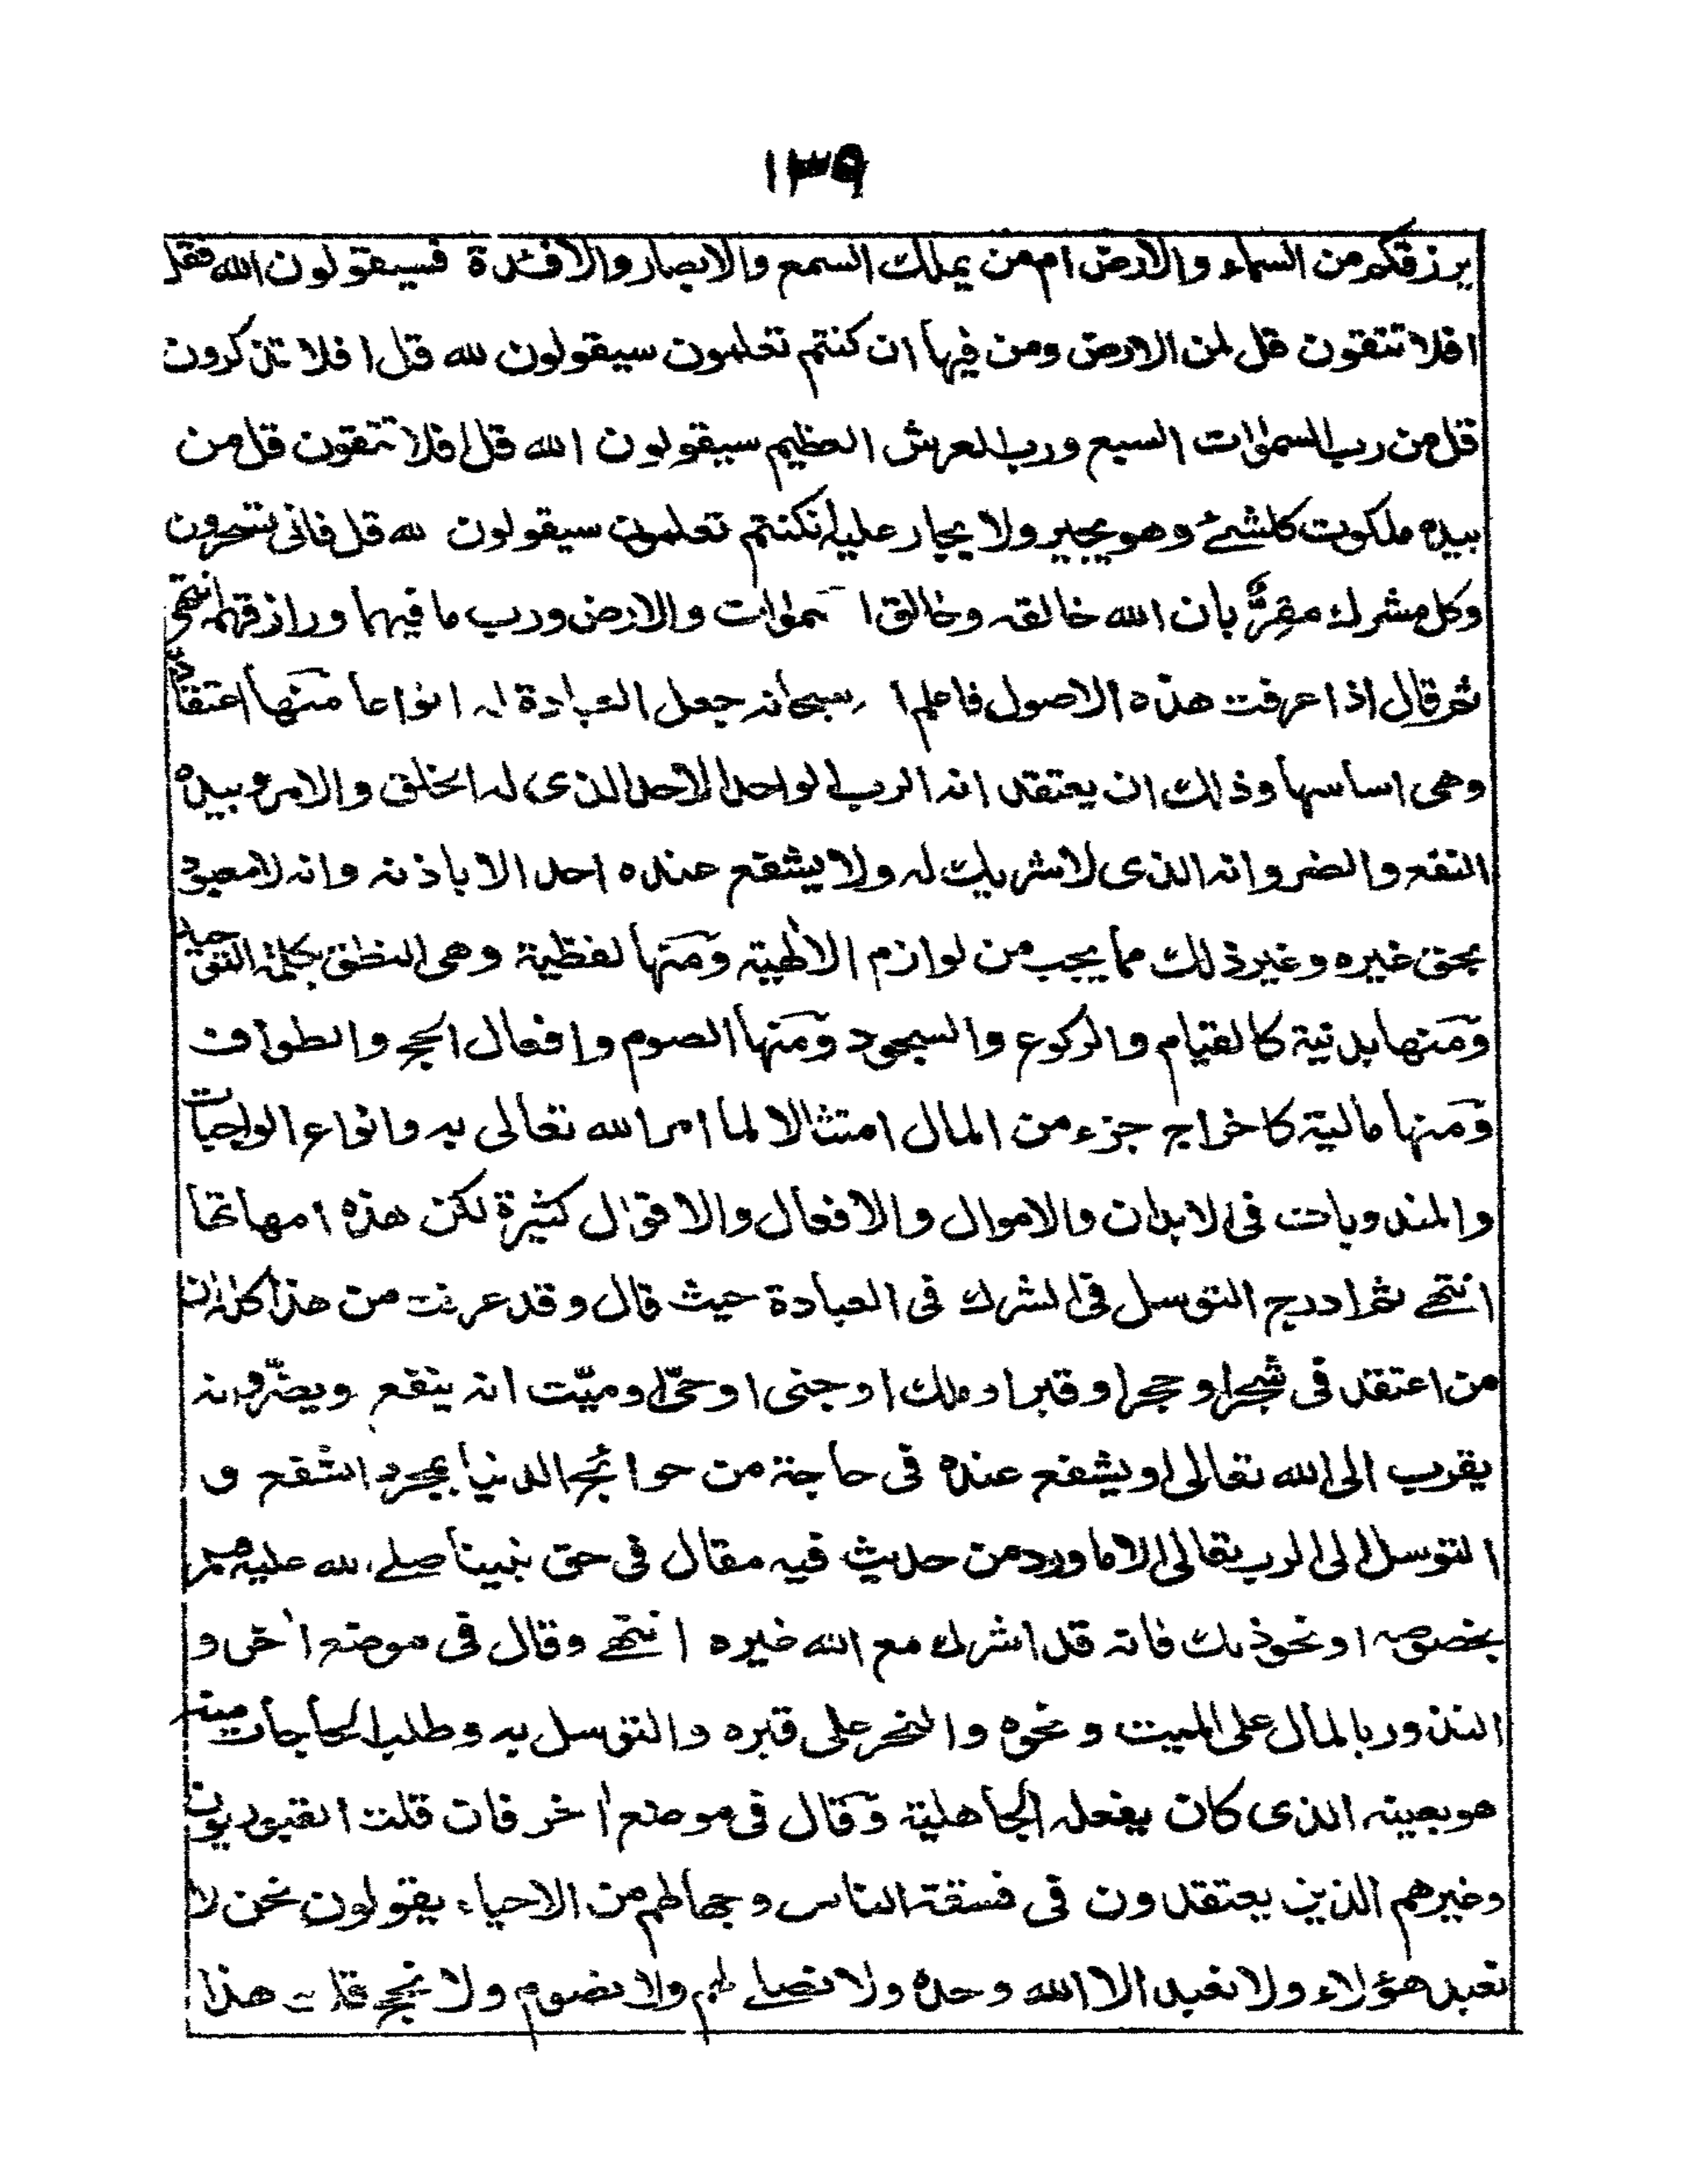 ١٣٩
يرزقكم من السماء والارض ام من يملك السمع والابصار والافئدة فسيقولون الله فقل
افلا تتقون قل لمن الارض ومن فيها ان كنتم تعلمون سيقولون لله قل افلا تذكرون
قل من رب السموات السبع ورب العرش العظيم سيقولون الله قل افلا تتقون قل من
بيده ملكوت كلشئ وهو يجير ولا يجار عليه انكنتم تعلمون سيقولون لله قل فانى تسحرون
وكل مشرك مقِرٌّ بان الله خالقه وخالق السموات والارض ورب ما فيهما ورازقهم انتهى
ثم قال اذا عرفت هذه الاصول فاعلم ا سبحانه جعل العبادة له انواعا منها اعتقادية
وهى اساسها وذلك ان يعتقد انه الرب الواحد الاحد الذى له الخلق والامر وبيده
النفع والضر وانه الذى لا شريك له ولا يشفع عنده احد الا باذنه وانه لا معبود
بحق غيره وغير ذلك مما يجب من لوازم الالهية ومنها لفظية وهى النطق بكلمة التوحيد
ومنها بدنية كالقيام والركوع والسجود ومنها الصوم وافعال الحج والطواف
ومنها مالية كاخراج جزء من المال امتثالا لما امر الله تعالى به وانواع الواجبات
والمندوبات فى الابدان والاموال والافعال والاقوال كثيرة لكن هذه امهاتها
انتهے ثم ادرج التوسل فى الشرك فى العبادة حيث قال وقد عرفت من هذا كله ان
من اعتقد فى شجر او حجر او قبر او ملك او جنى او حىّ او ميّت انه ينفع ويضرّ وانه
يقرب الى الله تعالى او يشفع عنده فى حاجة من حوائج الدنيا بمجرد التشفع و
التوسل الى الرب تعالى الا ما ورد من حديث فيه مقال فى حق نبينا صلے الله عليه وسلم
بخصوصه او نحو ذلك فانه قد اشرك مع الله غيره انتهے وقال فى موضع اخر و
النذور بالمال على الميت ونحوه والنحر على قبره والتوسل به وطلب الحاجات منه
هو بعينه الذى كان يفعله الجاهلية وقال فى موضع اخر فان قلت القبوريون
وغيرهم الذين يعتقدون فى فسقة الناس وجهالهم من الاحياء يقولون نحن لا
نعبد هؤلاء ولا نعبد الا الله وحده ولا نصلے لهم ولا نصوم ولا نحج قلت هذا